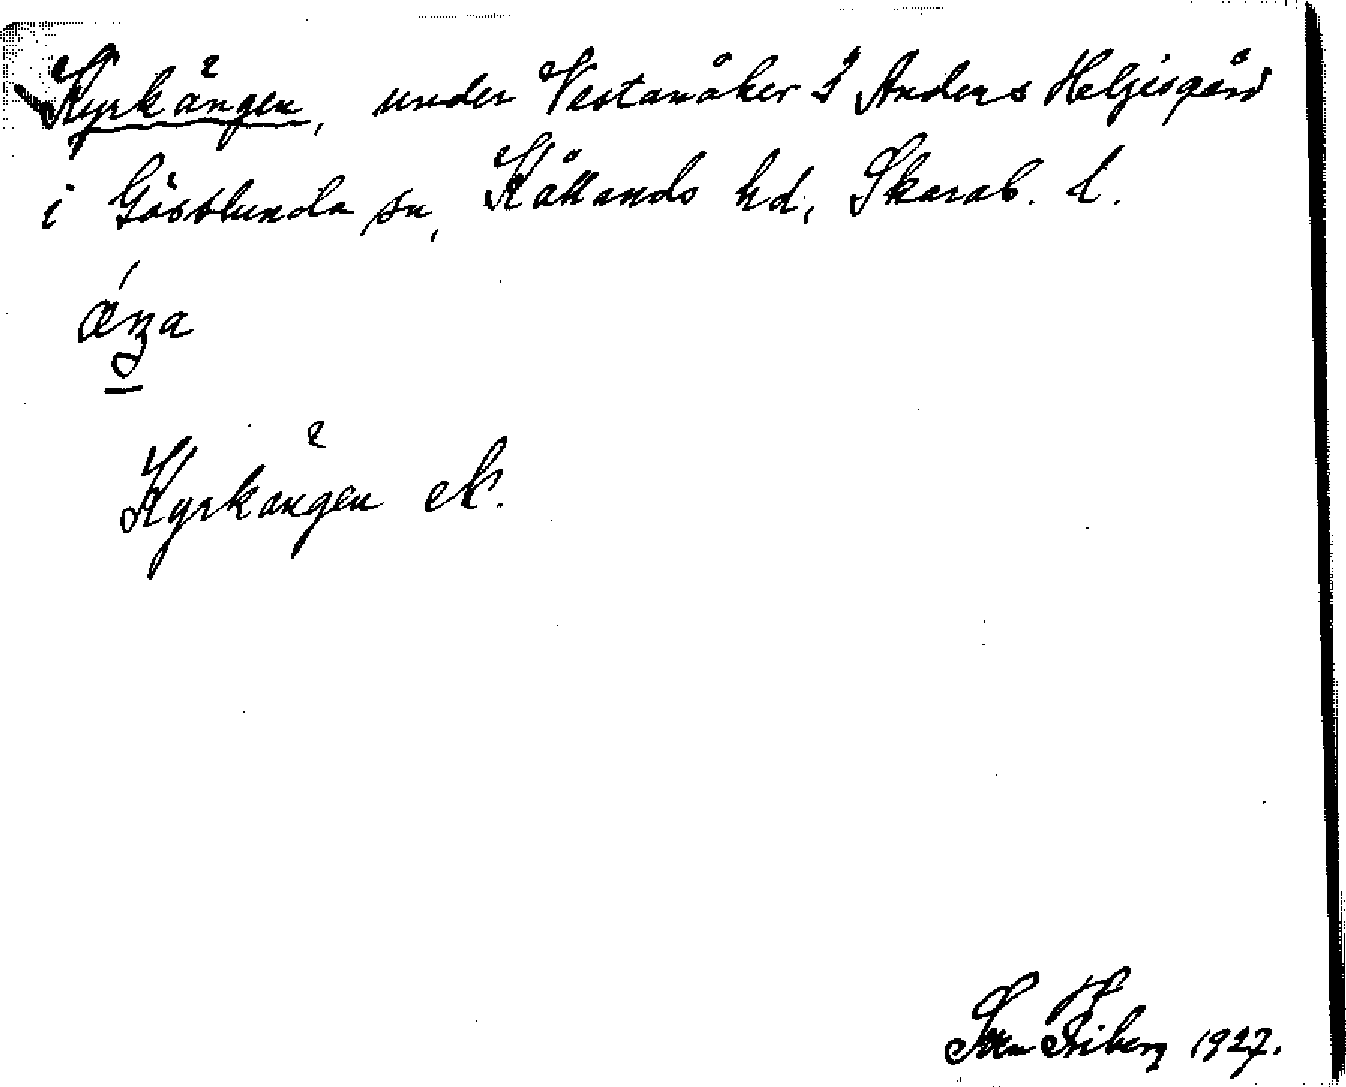 Kyrkängen, under Vestanåker 2 Anders Helgesgård
i Gösslunda sn, Kållands hd, Skarab. l.
Kyrkängen ek.
Sven Friberg 1927.